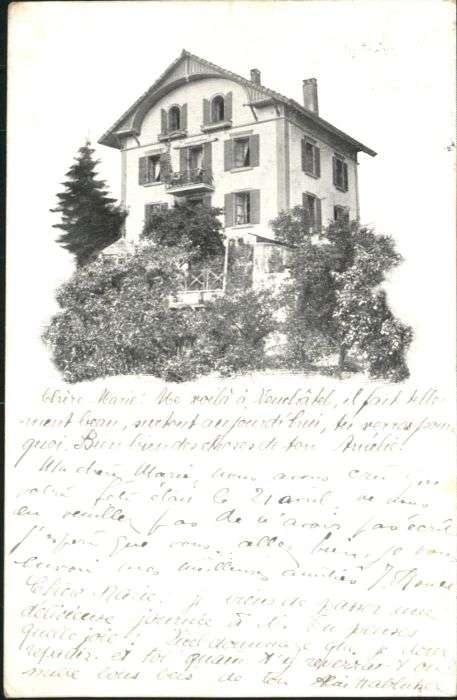 Chère Marie! Me voilà à Neuchâtel, il fait telle-
ment beau, surtout aujourd'hui, tu verras pour-
quoi. Bien bien des choses de ton Amélie!
Ma chère Marie, nous avons cru que
votre fête était le 21 avril, ne nous
en veuillez pas de n'avoir pas écrit
J'espère que vous allez bien, je vous
envoie mes meilleures amitiés J.
Chère Marie! je viens de passer une
délicieuse journée à N. Tu penses
quelle joie! Quel dommage que je dois
repartir. et toi quand t'y reverrai
mille bons becs de ton